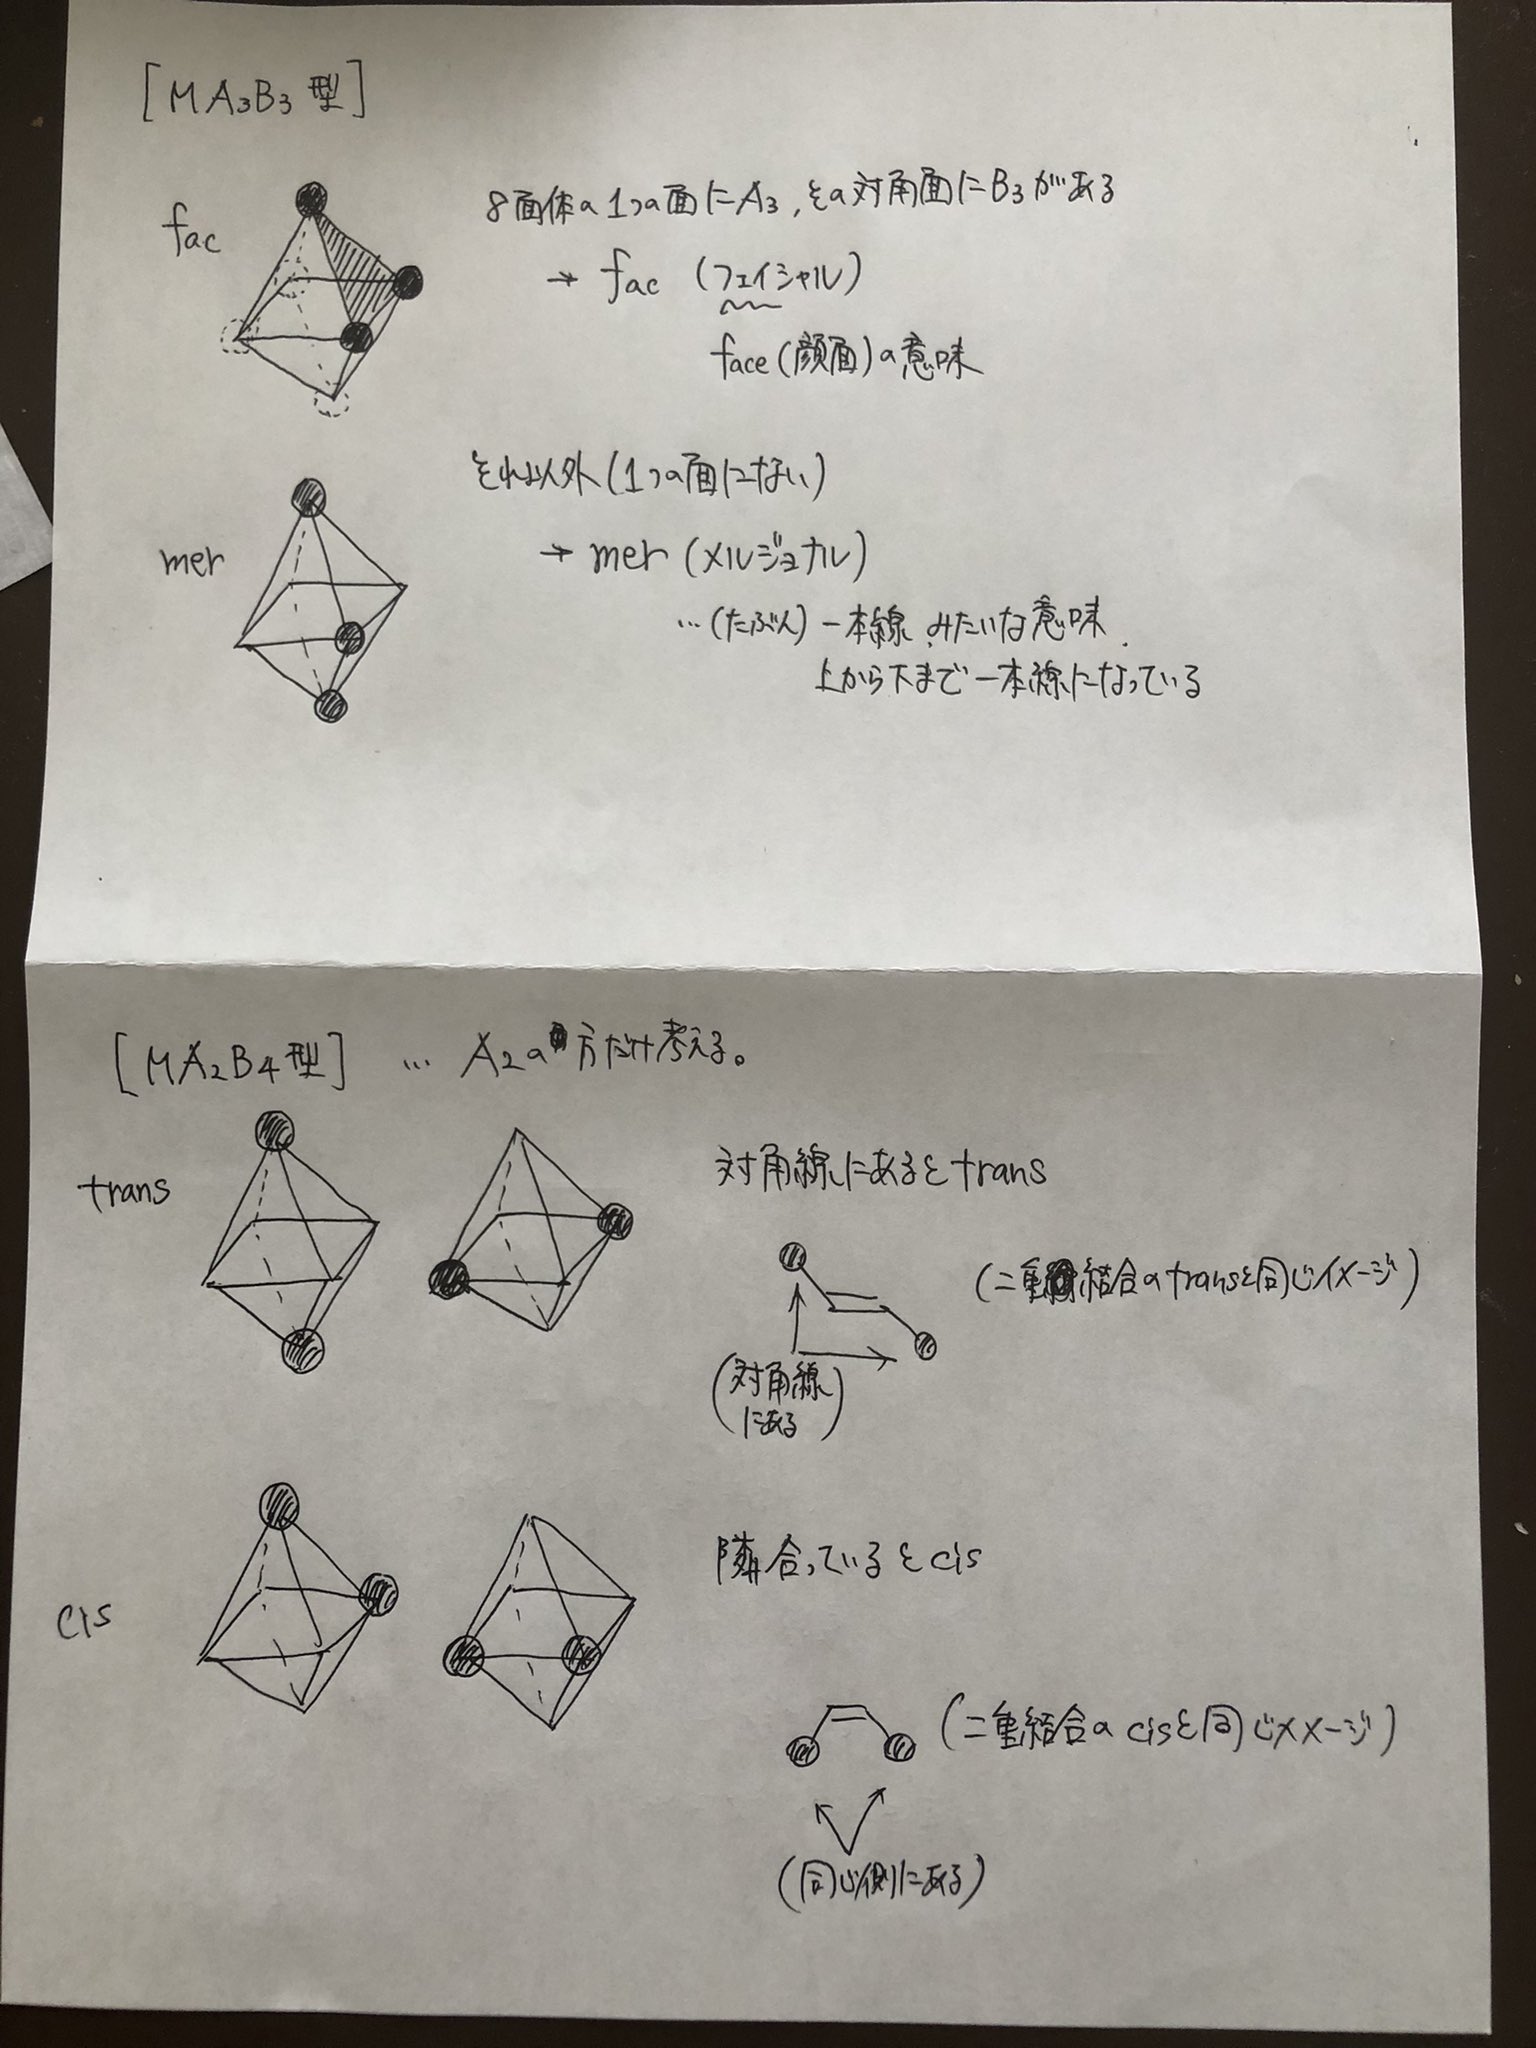 [MA₃B₃型]
fac
8面体の1つの面にA₃,その対角面にB₃がある
→ fac (フェイシャル)
face (顔面)の意味
mer
それ以外(1つの面にない)
→ mer (メルジョナル)
…(たぶん)一本線みたいな意味.
上から下まで一本線になっている
[MA₂B₄型] … A₂の方だけ考える。
trans
対角線にあるとtrans
(二重結合のtransと同じイメージ)
(対角線
にある)
cis
隣合っているとcis
(二重結合のcisと同じイメージ)
(同じ側にある)